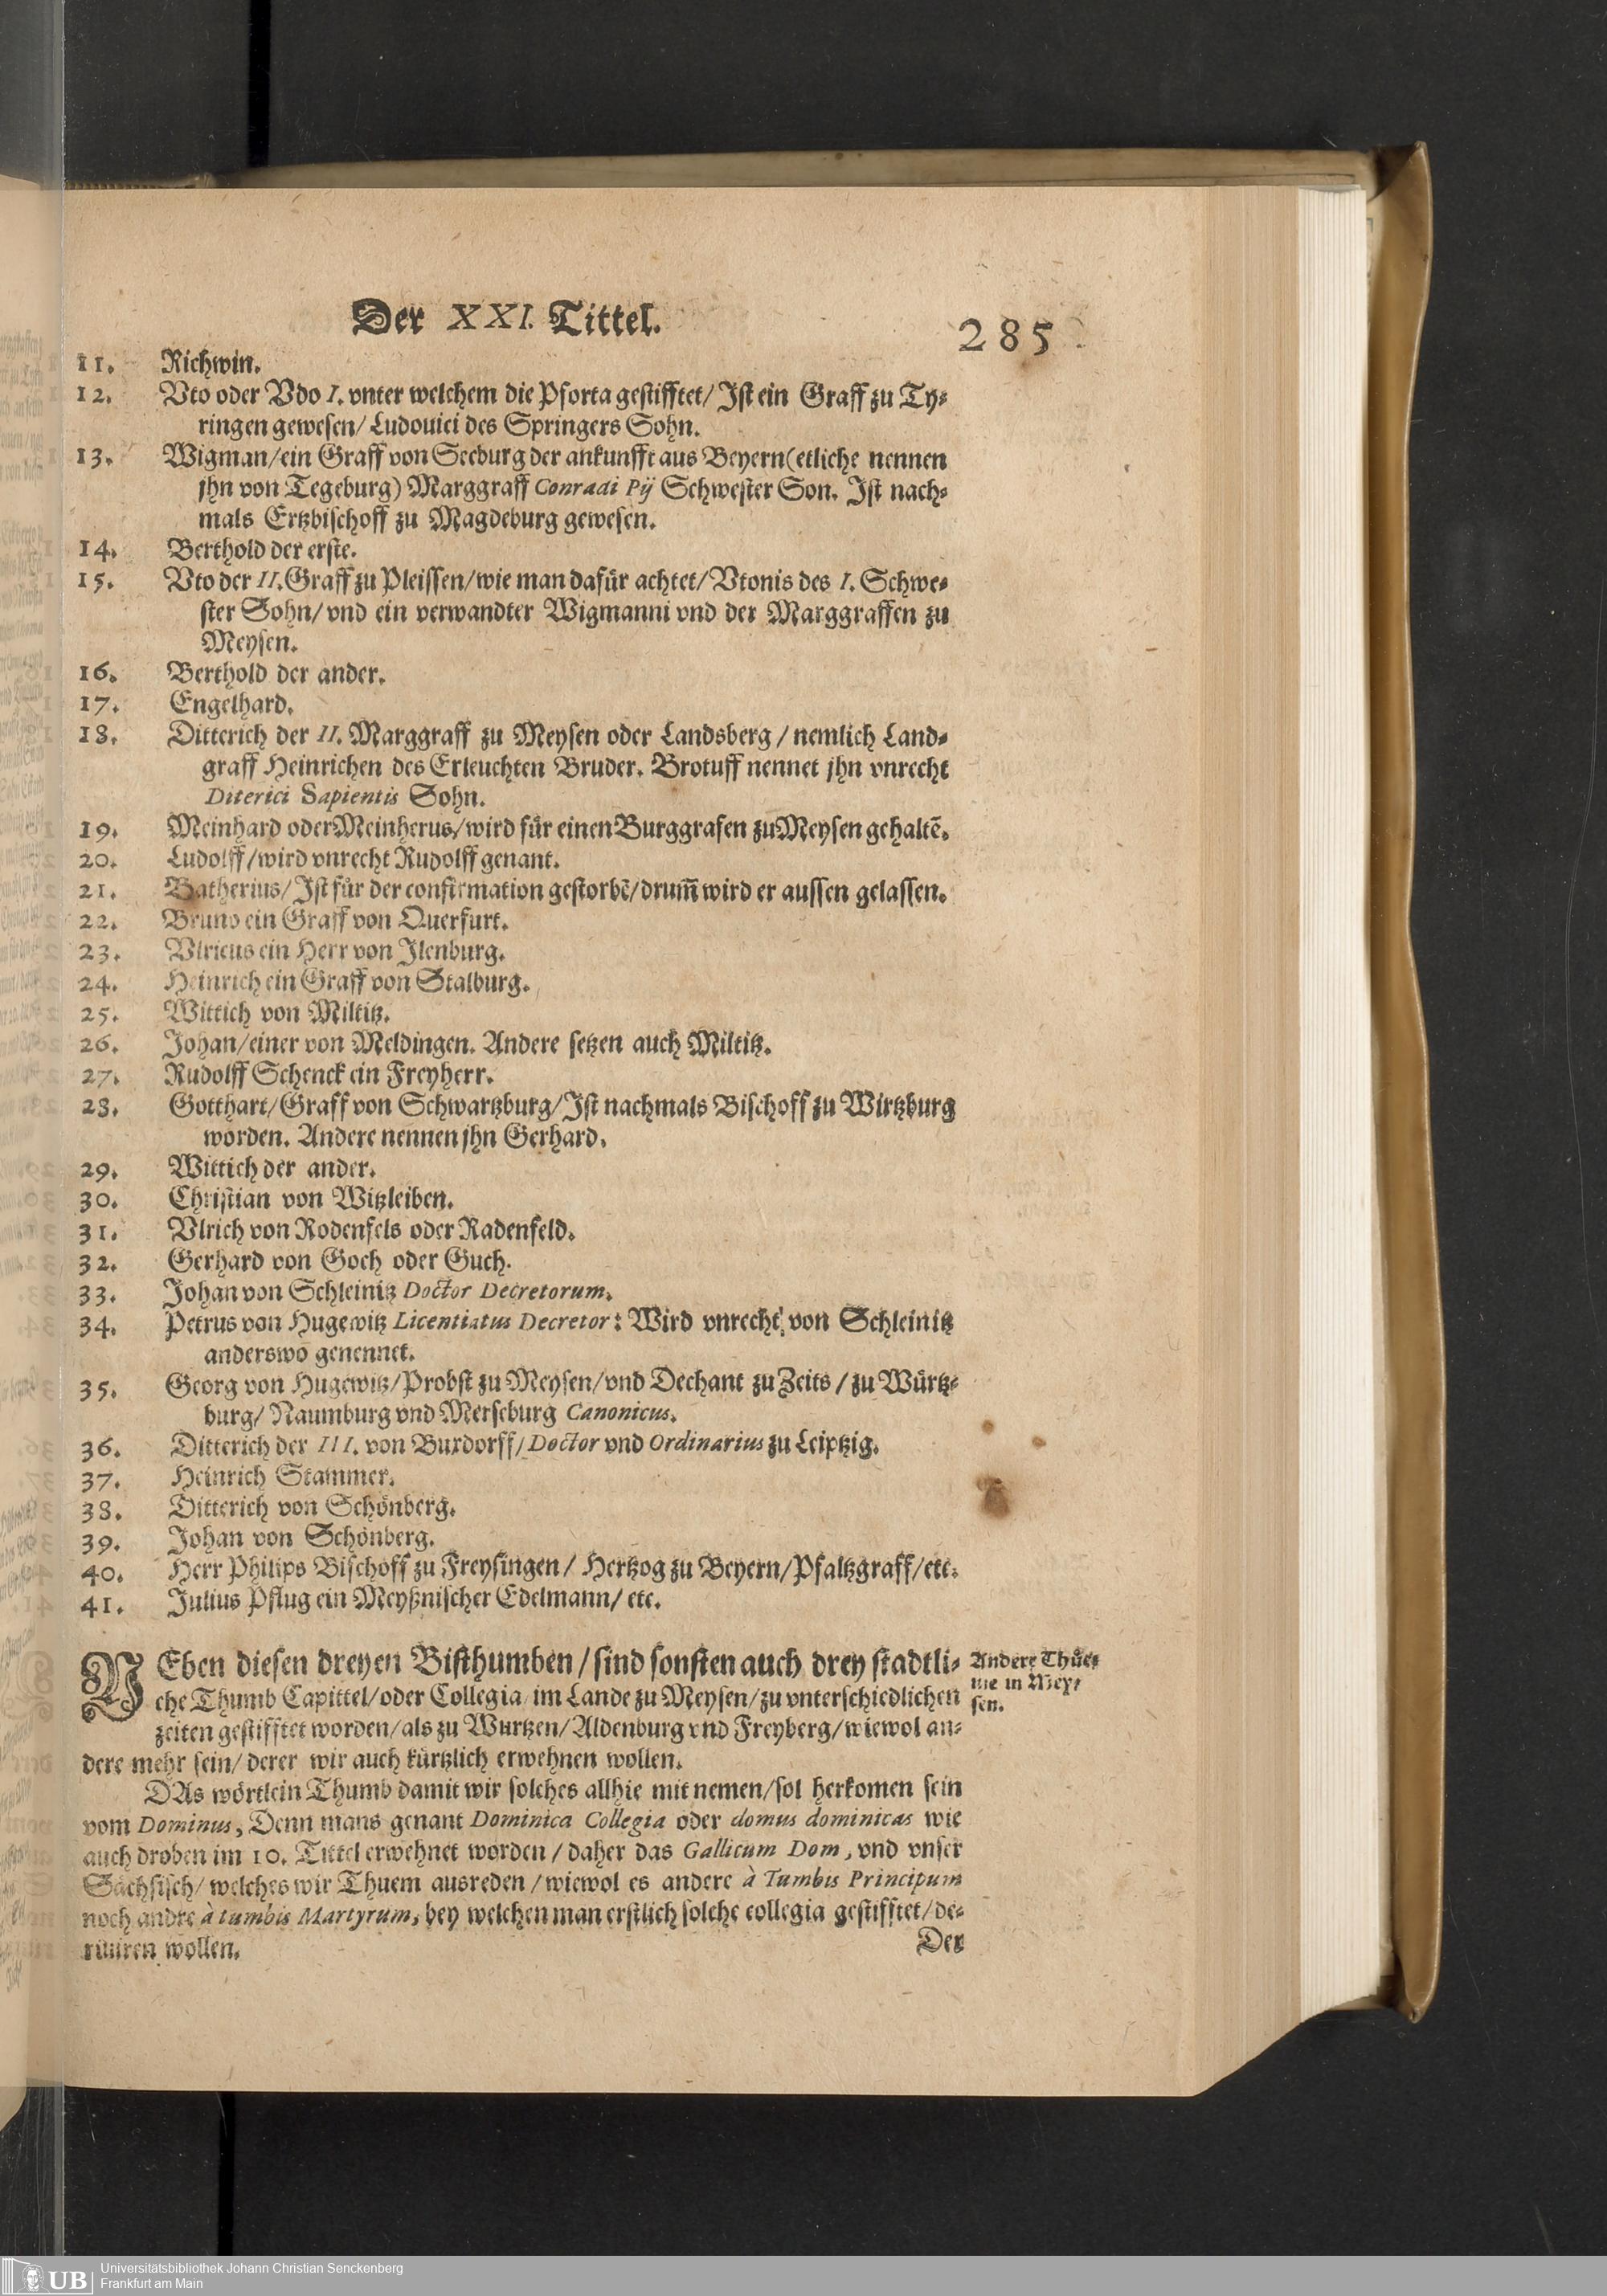 Der XXI. Tittel.
285
11. Richwin.
12. Vto oder Vdo I. vnter welchem die Pforta gestifftet/ Ist ein Graff zu Ty-
ringen gewesen/ Ludouici des Springers Sohn.
13. Wigman/ein Graff von Seeburg der ankunfft aus Beyern(etliche nennen
jhn von Tegeburg) Marggraff Conradi Pij Schwester Son. Ist nach-
mals Ertzbischoff zu Magdeburg gewesen.
14. Berthold der erste.
15. Vto der II. Graff zu Pleissen/wie man dafür achtet/ Vtonis des I. Schwe-
ster Sohn/ vnd ein verwandter Wigmanni vnd der Marggraffen zu
Meysen.
16. Berthold der ander.
17. Engelhard.
18. Ditterich der II. Marggraff zu Meysen oder Landsberg / nemlich Land-
graff Heinrichen des Erleuchten Bruder. Brotuff nennet jhn vnrecht
Diterici Sapientis Sohn.
19. Meinhard oder Meinherus/wird für einen Burggrafen zu Meysen gehaltẽ.
20. Ludolff/wird vnrecht Rudolff genant.
21. Batherius/ Ist für der confirmation gestorbẽ/drum̃ wird er aussen gelassen.
22. Bruno ein Graff von Querfurt.
23. Vlricus ein Herr von Ilenburg.
24. Heinrich ein Graff von Stalburg.
25. Wittich von Miltitz.
26. Johan/einer von Meldingen. Andere setzen auch Miltitz.
27. Rudolff Schenck ein Freyherr.
28. Gotthart/Graff von Schwartzburg/Ist nachmals Bischoff zu Wirtzburg
worden. Andere nennen jhn Gerhard.
29. Wittich der ander.
30. Christian von Witzleiben.
31. Vlrich von Rodenfels oder Radenfeld.
32. Gerhard von Goch oder Guch.
33. Johan von Schleinitz Doctor Decretorum.
34. Petrus von Hugewitz Licentiatus Decretor: Wird vnrecht von Schleinitz
anderswo genennet.
35. Georg von Hugewitz/Probst zu Meysen/vnd Dechant zu Zeits / zu Würtz-
burg/ Naumburg vnd Merseburg Canonicus.
36. Ditterich der III. von Buxdorff/ Doctor vnd Ordinarius zu Leiptzig.
37. Heinrich Stammer.
38. Ditterich von Schönberg.
39. Johan von Schönberg.
40. Herr Philips Bischoff zu Freysingen / Hertzog zu Beyern/Pfaltzgraff/etc.
41. Julius Pflug ein Meyßnischer Edelmann/ etc.
NEben diesen dreyen Bisthumben / sind sonsten auch drey stadtli-
che Thumb Capittel/oder Collegia im Lande zu Meysen/zu vnterschiedlichen
zeiten gestifftet worden/als zu Wurtzen/Aldenburg vnd Freyberg/wiewol an-
dere mehr sein/ derer wir auch kürtzlich erwehnen wollen.
Andere Thüe-
me in Mey-
sen.
DAs wörtlein Thumb damit wir solches allhie mit nemen/sol herkomen sein
vom Dominus, Denn mans genant Dominica Collegia oder domus dominicas wie
auch droben im 10. Tittel erwehnet worden / daher das Gallicum Dom, vnd vnser
Sächsisch/ welches wir Thuem ausreden / wiewol es andere à Tumbis Principum
noch andre à tumbis Martyrum, bey welchen man erstlich solche collegia gestifftet/de-
riuiren wollen.
Der
UB
Universitätsbibliothek Johann Christian Senckenberg
Frankfurt am Main